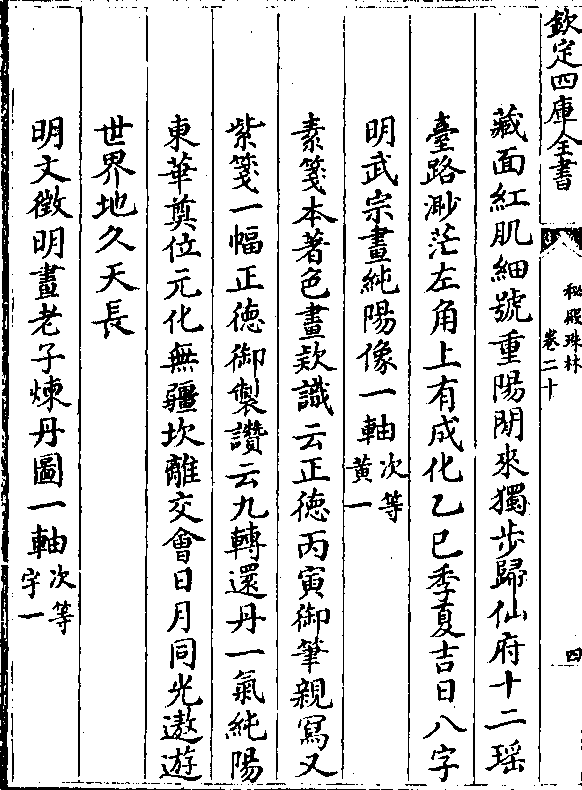 欽定四庫全書
秘殿珠林
卷二十
四
藏面紅肌細號重陽閒來獨步歸仙府十二瑶
臺路渺茫左角上有成化乙巳季夏吉日八字
明武宗畫純陽像一軸次等
黄一
素箋本著色畫款識云正德丙寅御筆親寫又
紫箋一幅正德御製讚云九轉還丹一氣純陽
東華奠位元化無疆坎離交會日月同光遨遊
世界地久天長
明文徵明畫老子煉丹圖一軸次等
宇一